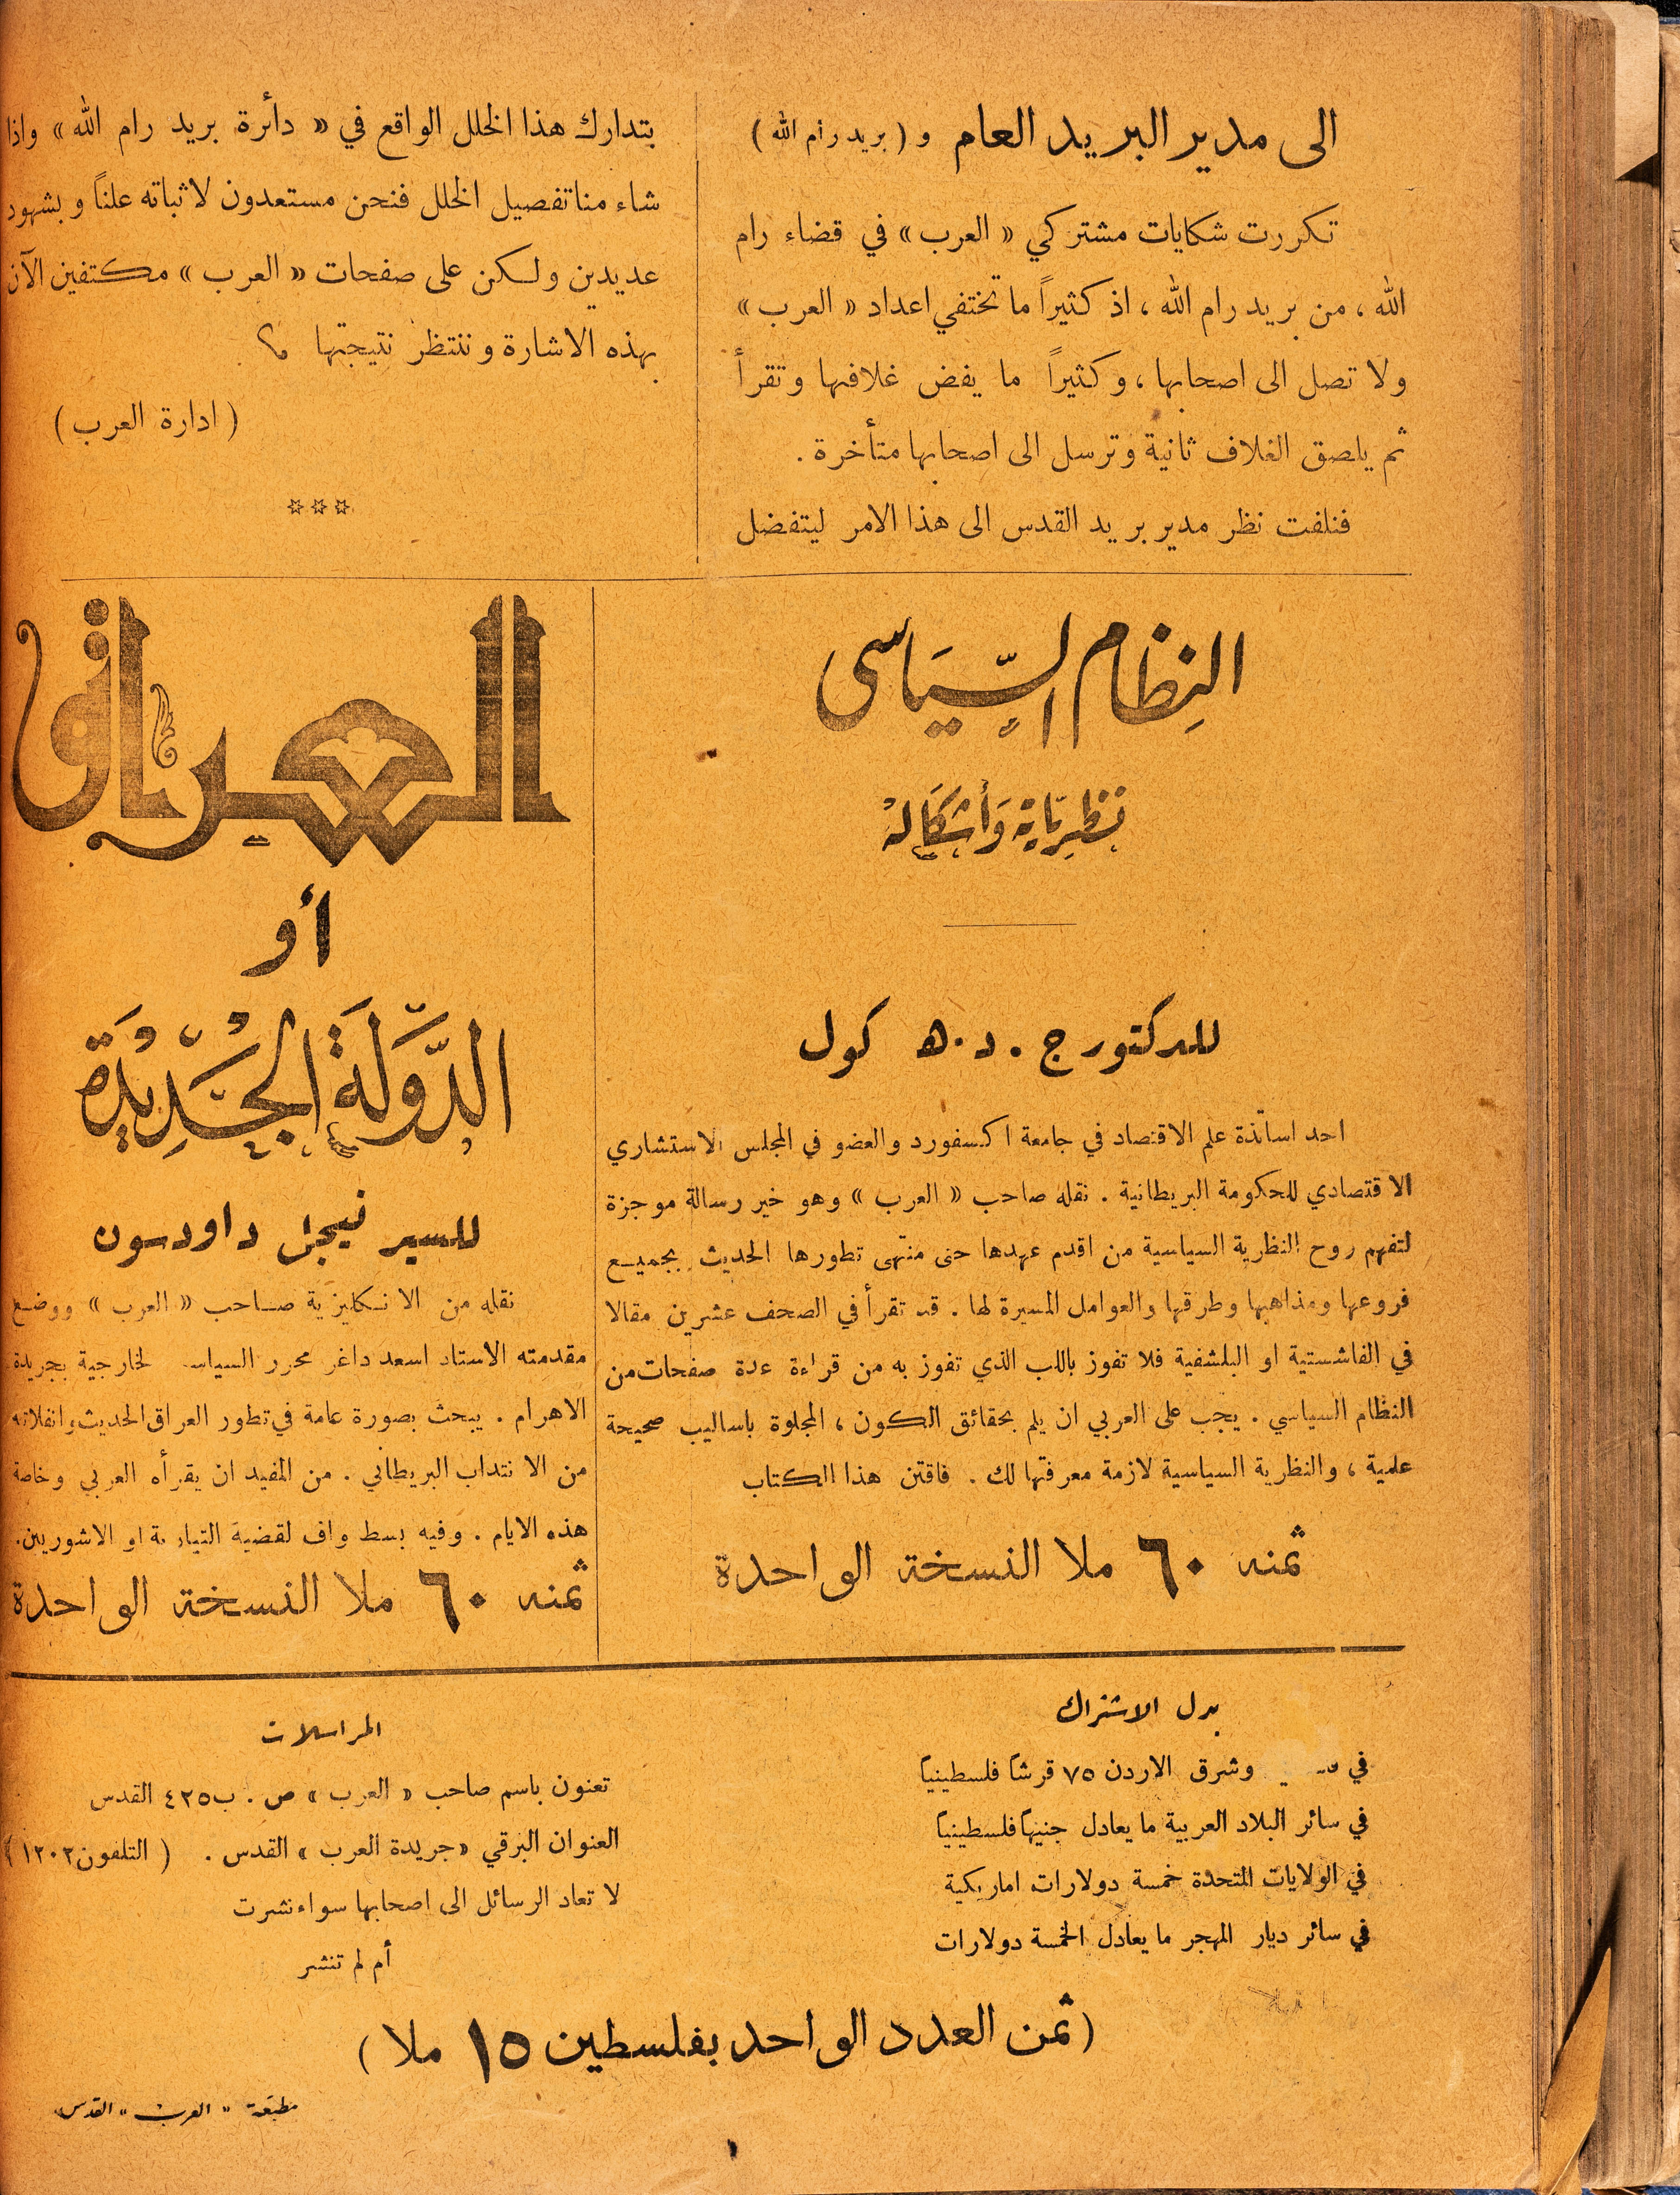 الى مدير البريد العام و (بريد رام الله)
تكررت شكايات مشتركي «العرب» في قضاء رام
الله ، من بريد رام الله ، اذ كثيراً ما تختفي اعداد «العرب»
ولا تصل الى اصحابها ، وكثيراً ما يفض غلافها وتقرأ
ثم يلصق الغلاف ثانية وترسل الى اصحابها متأخرة .
فنلفت نظر مدير بريد القدس الى هذا الامر ليتفضل
بتدارك هذا الخلل الواقع في «دائرة بريد رام الله» واذا
شاء منا تفصيل الخلل فنحن مستعدون لاثباته علناً وبشهود
عديدين ولكن على صفحات «العرب» مكتفين الآن
بهذه الاشارة وننتظر نتيجتها
(ادارة العرب)
***
النظام السياسى
نظرياته وأشكاله
للدكتور ج . د . ه كول
احد اساتذة علم الاقتصاد في جامعة اكسفورد والعضو في المجلس الاستشاري
الاقتصادي للحكومة البريطانية . نقله صاحب «العرب» وهو خير رسالة موجزة
لتفهم روح النظرية السياسية من اقدم عهدها حتى منتهى تطورها الحديث بجميع
فروعها ومذاهبها وطرقها والعوامل المسيرة لها . قد تقرأ في الصحف عشرين مقالا
في الفاشستية او البلشفية فلا تفوز باللب الذي تفوز به من قراءة عدة صفحات من
النظام السياسي . يجب على العربي ان يلم بحقائق الكون ، المجلوة باساليب صحيحة
علمية ، والنظرية السياسية لازمة معرفتها لك . فاقتن هذا الكتاب
ثمنه ٦٠ ملا النسخة الواحدة
العراق
أو
الدولة الجديدة
للسير نيجل داودسون
نقله من الانكليزية صاحب «العرب» ووضع
مقدمته الاستاذ اسعد داغر محرر السياسة الخارجية بجريدة
الاهرام . يبحث بصورة عامة في تطور العراق الحديث وانفلاته
من الانتداب البريطاني . من المفيد ان يقرأه العربي وخاصة
هذه الايام . وفيه بسط واف لقضية التيارية او الاشوريين .
ثمنه ٦٠ ملا النسخة الواحدة
بدل الاشتراك
في وشرق الاردن ٧٥ قرشاً فلسطينياً
في سائر البلاد العربية ما يعادل جنيهاً فلسطينياً
في الولايات المتحدة خمسة دولارات اماريكية
في سائر ديار المهجر ما يعادل الخمسة دولارات
المراسلات
تعنون باسم صاحب «العرب» ص . ب ٤٢٥ القدس
العنوان البرقي «جريدة العرب» القدس . (التلفون ١٢٠٢)
لا تعاد الرسائل الى اصحابها سواء نشرت
أم لم تنشر
(ثمن العدد الواحد بفلسطين ١٥ ملا)
مطبعة «العرب» القدس